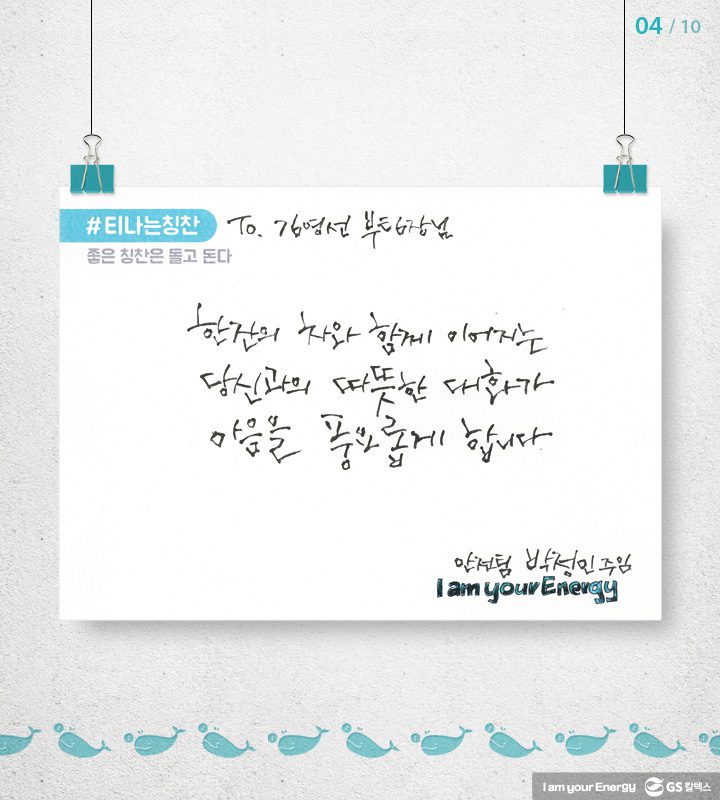 04 / 10
#티나는칭찬 To. 김영선 부팀장님
좋은 칭찬은 돌고 돈다
한잔의 차와 함께 이어지는
당신과의 따뜻한 대화가
마음을 풍요롭게 합니다
안전팀 박성민 주임
I am your Energy
I am your Energy GS칼텍스